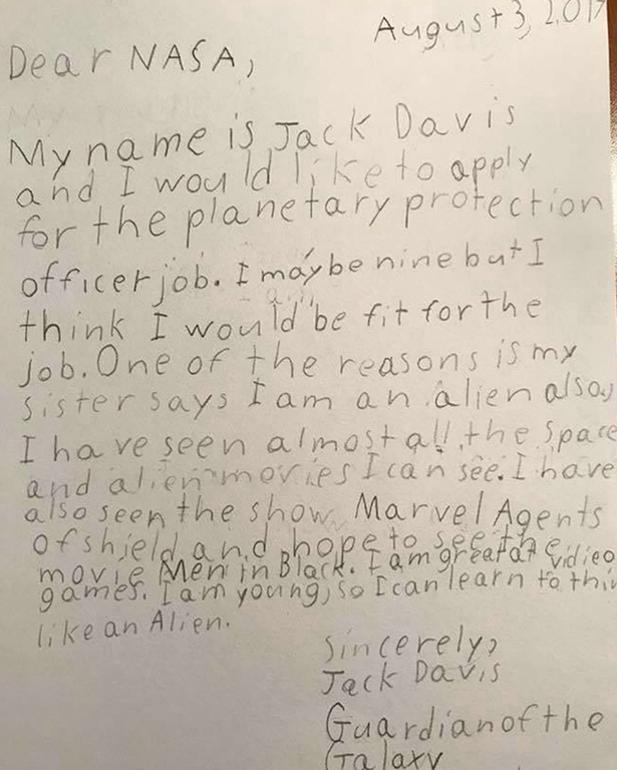 August 3, 2017
Dear NASA,
My name is Jack Davis
and I would like to apply
for the planetary protection
officer job. I may be nine but I
think I would be fit for the
job. One of the reasons is my
sister says I am an alien also,
I have seen almost all the space
and alien movies I can see. I have
also seen the show Marvel Agents
of shield and hope to see the
movie Men in Black. I am great at vidieo
games. I am young, so I can learn to thin
like an Alien.
Sincerely,
Jack Davis
Guardian of the
Galaxy